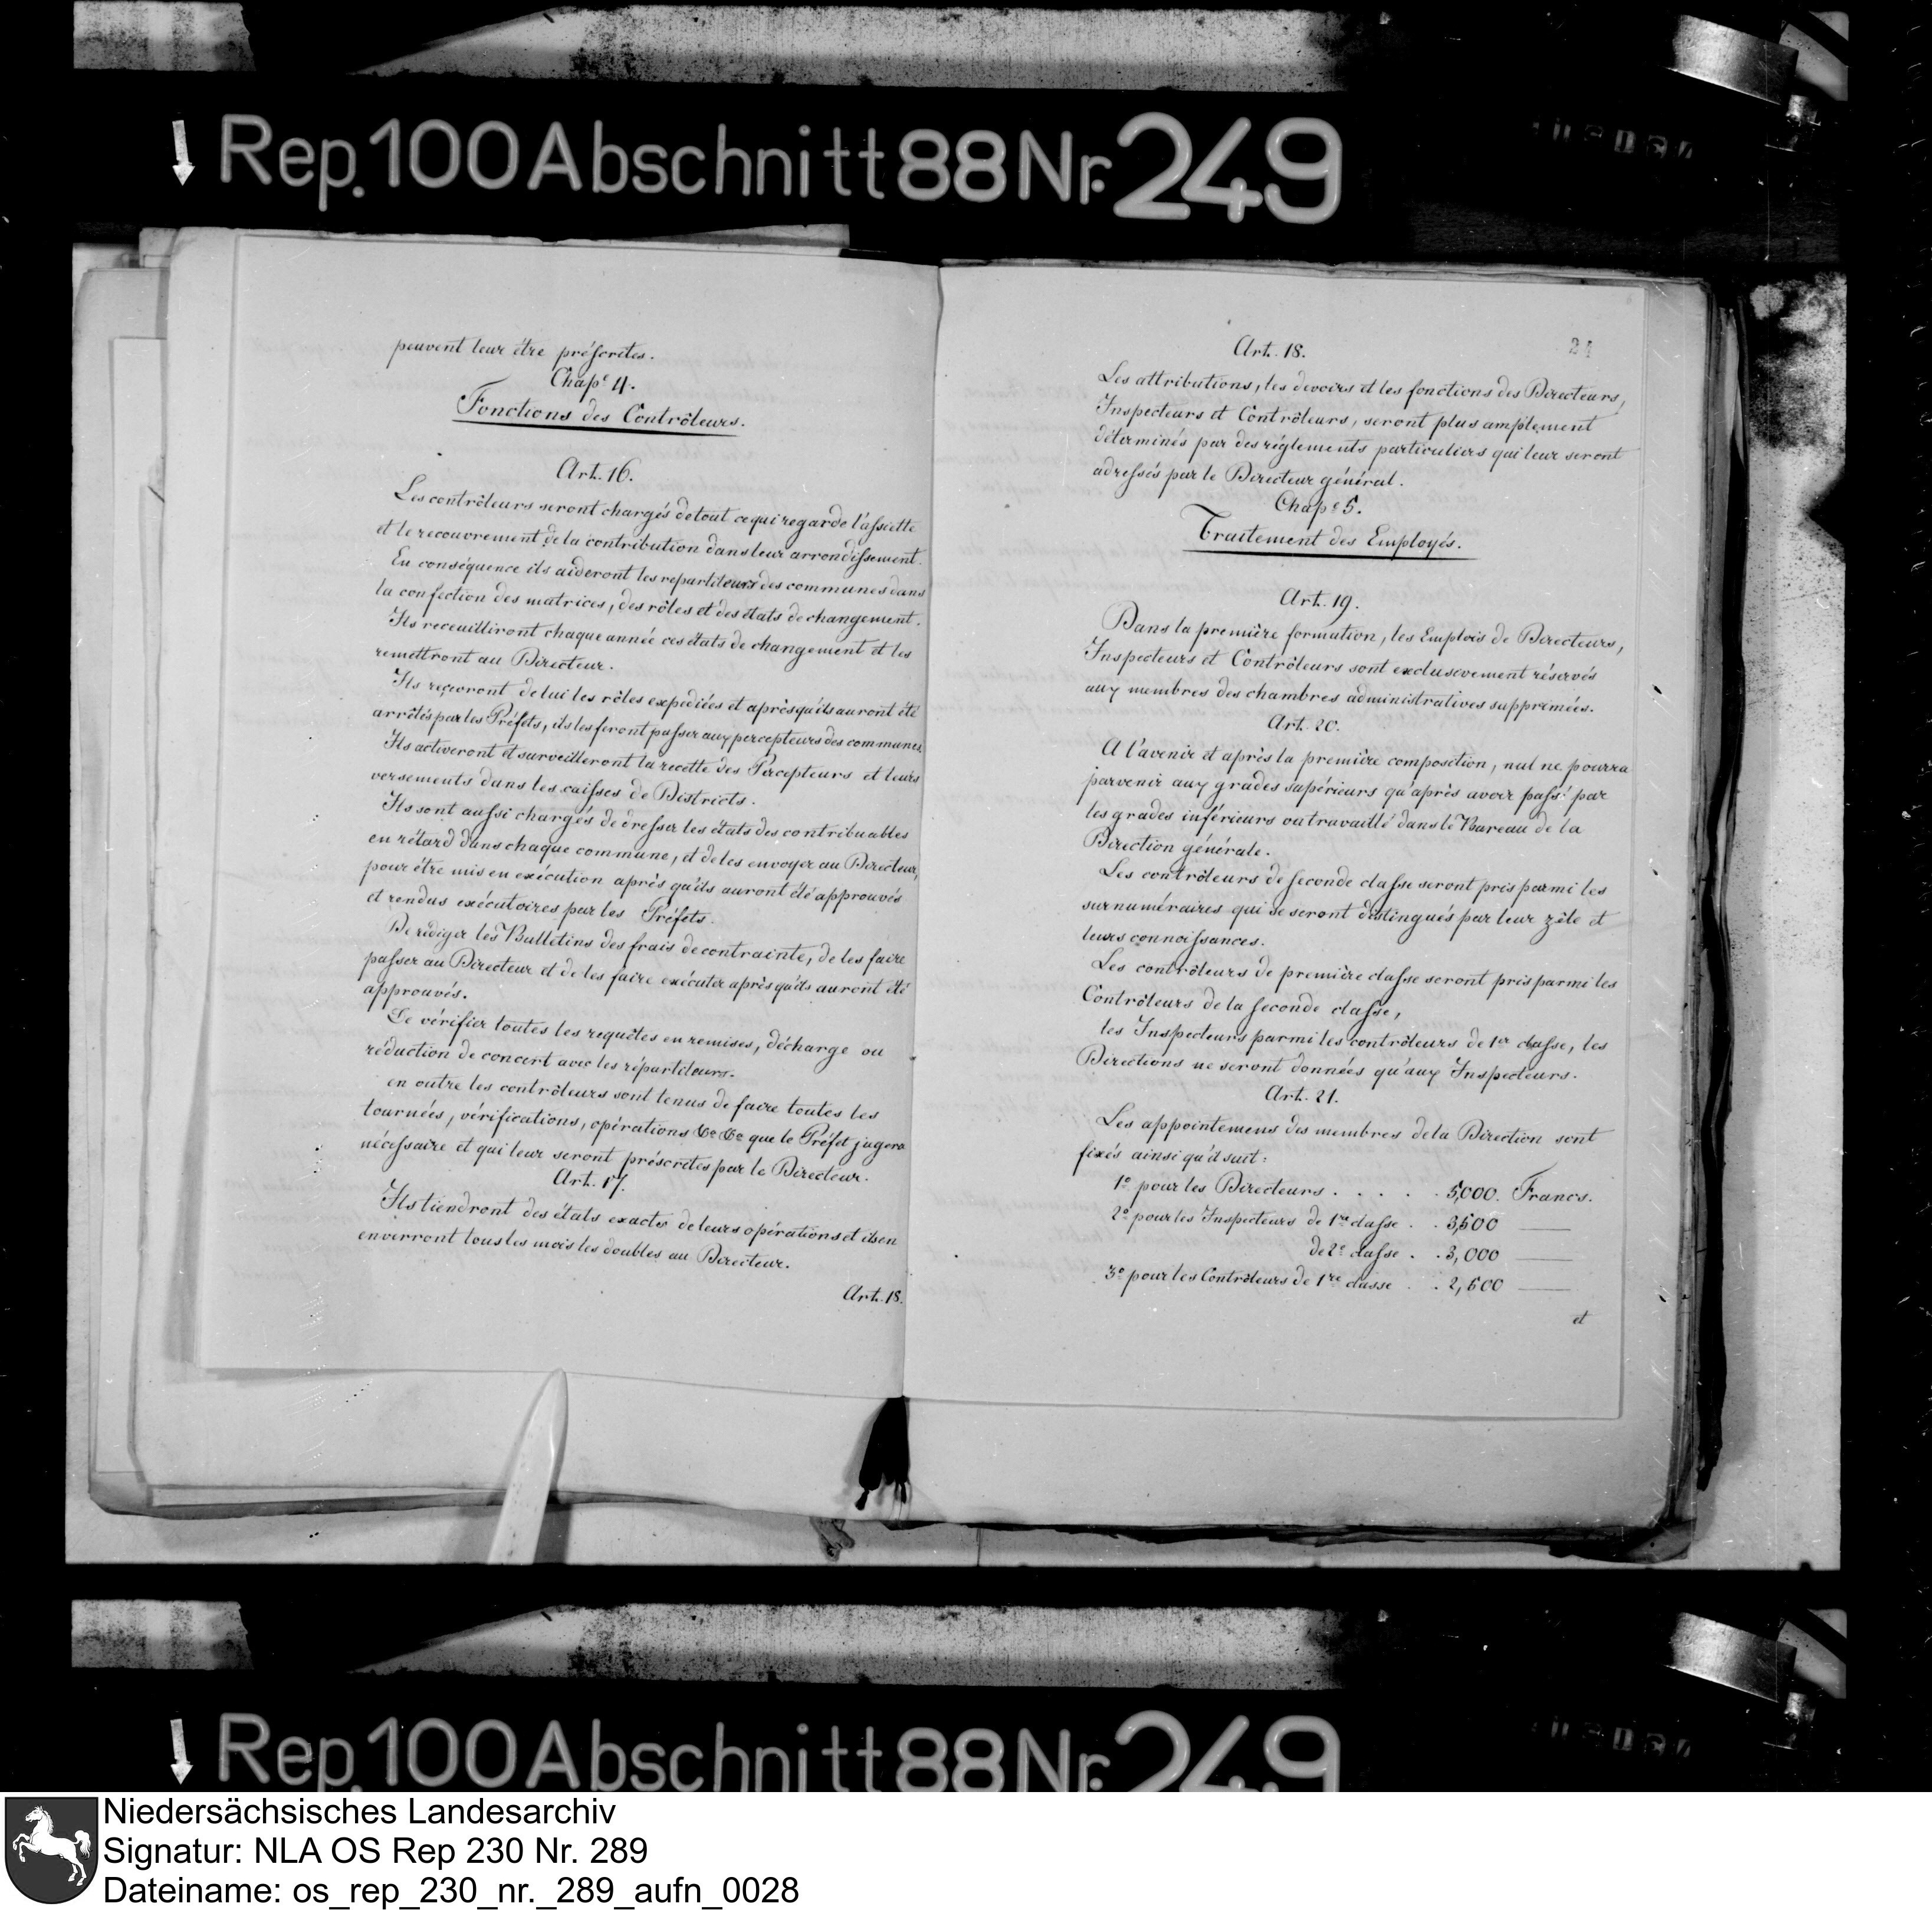 Rep. 100 Abschnitt 88 Nr. 249
peuvent leur être préscrites.
Chap.e 4.
Fonctions des Contrôleurs.
Art. 16.
Les contrôleurs seront chargés de tout ce qui regarde l'assiette
et le recouvrement de la contribution dans leur arrondissement.
En conséquence ils aideront les repartiteurs des communes dans
la confection des matrices, des rôles et des états de changement.
Ils receuilliront chaque année ces états de changement et les
remettront au Directeur.
Ils reçevront de lui les rôles expediées et après qu'ils auront été
arrêtés par les Préfets, ils les feront passer aux percepteurs des communes.
Ils activeront et surveilleront la recette des Percepteurs et leurs
versements dans les caisses de Districts.
Ils sont aussi chargés de dresser les états des contribuables
en rétard dans chaque commune, et de les envoyer au Directeur,
pour être mis en exécution après qu'ils auront été approuvés
et rendus exécutoires par les Préfets.
De rédiger les Bulletins des frais de contrainte, de les faire
passer au Directeur et de les faire exécuter après qu'ils auront été
approuvés.
De vérifier toutes les requêtes en remises, décharge ou
réduction de concert avec les répartiteurs.
en outre les contrôleurs sont tenus de faire toutes les
tournées, vérifications, opérations &c &c que le Préfet jugera
nécessaire et qui leur seront préscrites par le Directeur.
Art. 17.
Ils tiendront des états exacts de leurs opérations et ils en
enverront tous les mois les doubles au Directeur.
Art. 18.
24
Art. 18.
Les attributions, les devoirs et les fonctions des Directeurs,
Inspecteurs et Contrôleurs, seront plus amplement
déterminés par des réglements particuliers qui leur seront
adressés par le Directeur général.
Chap.e 5.
Traitement des Employés.
Art. 19.
Dans la première formation, les Emplois de Directeurs,
Inspecteurs et Contrôleurs sont exclusivement réservés
aux membres des chambres administratives supprimées.
Art. 20.
A l'avenir et après la première composition, nul ne pourra
parvenir aux grades supérieurs qu'après avoir passé par
les grades inférieurs ou travaillé dans le Bureau de la
Direction générale.
Les contrôleurs de seconde classe seront pris parmi les
surnuméraires qui se seront distingués par leur zèle et
leurs connoissances.
Les contrôleurs de première classe seront pris parmi les
Contrôleurs de la seconde classe,
les Inspecteurs parmi les contrôleurs de 1er classe, les
Directions ne seront données qu'aux Inspecteurs.
Art. 21.
Les appointemens des membres de la Direction sont
fixés ainsi qu'il suit:
1º pour les Directeurs . . . . . 5,000. Francs.
2º pour les Inspecteurs de 1re classe . . 3,500 ——
de 2e classe . . 3,000 ——
3º pour les Contrôleurs de 1re classe . . 2,600 ——
et
Rep. 100 Abschnitt 88 Nr. 249
Niedersächsisches Landesarchiv
Signatur: NLA OS Rep 230 Nr. 289
Dateiname: os_rep_230_nr._289_aufn_0028